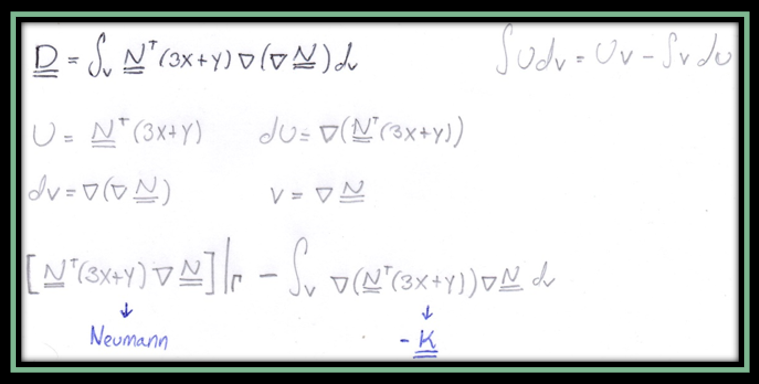 D = ∫v N^T (3x+y) ∇(∇ N) dv
∫Udv = Uv - ∫v dU
U = N^T (3x+y)
dU = ∇(N^T (3x+y))
dv = ∇(∇ N)
v = ∇ N
[N^T (3x+y) ∇ N]|Γ - ∫v ∇(N^T (3x+y)) ∇ N dv
↓ ↓
Neumann - K